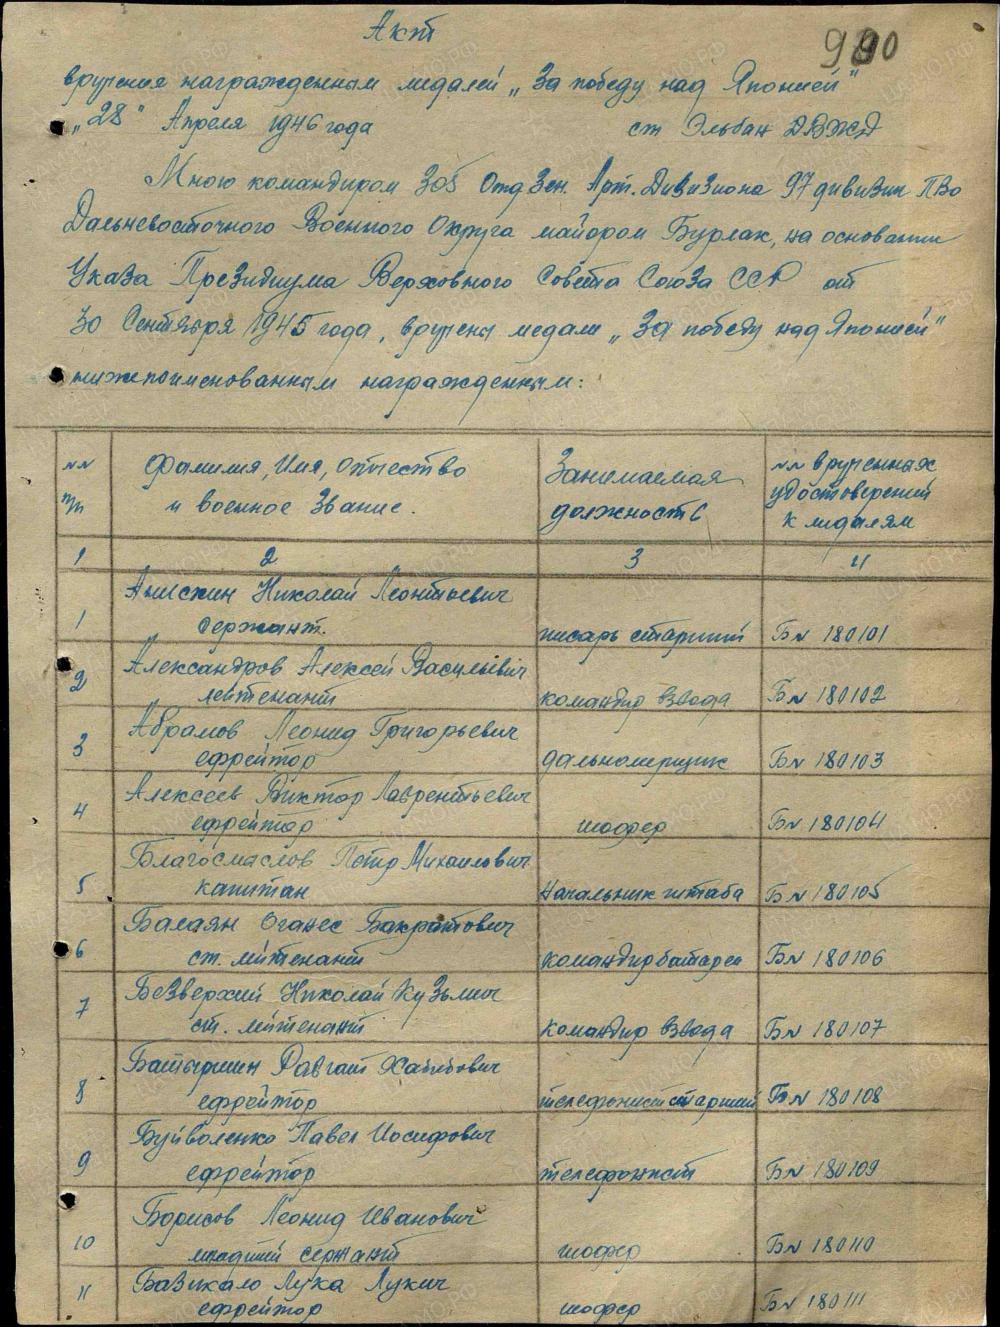 Акт
900
вручения награжденным медалей „За победу над Японией"
„28" Апреля 1946 года ст Эльбан ДВЖД
Мною командиром 305 Отд Зен. Арт. Дивизиона 97 дивизии ПВО
Дальневосточного Военного Округа майором Бурлак, на основании
Указа Президиума Верховного Совета Союза ССР от
30 Сентября 1945 года, вручены медали „За победу над Японией"
нижепоименованным награжденным:
№№ п/п Фамилия, Имя, Отчество и военное Звание. Занимаемая должность №№ врученных удостоверений к медалям
1 2 3 4
1 Николай Леонтьевич сержант. писарь старший Б№ 180101
2 Александров Алексей Васильевич лейтенант командир взвода Б№ 180102
3 Абрамов Леонид Григорьевич ефрейтор дальномерщик Б№ 180103
4 Алексеев Виктор Лаврентьевич ефрейтор шофер Б№ 180104
5 Благосмаслов Петр Михаилович капитан Начальник штаба Б№ 180105
6 Балаян Оганес Бакратович ст. лейтенант командир батареи Б№ 180106
7 Безверхий Николай Кузьмич ст. лейтенант командир взвода Б№ 180107
8 Батыршин Равгат Хабибович ефрейтор телефонист старший Б№ 180108
9 Буйволенко Павел Иосифович ефрейтор телефонист Б№ 180109
10 Борисов Леонид Иванович младший сержант шофер Б№ 180110
11 Базикало Лука Лукич ефрейтор шофер Б№ 180111